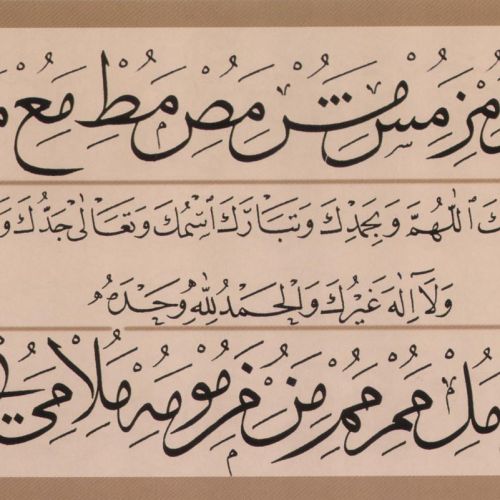 مز مس مش مص مط مع
ك اللهم وبحمدك وتبارك اسمك وتعالى جدك و
ولا اله غيرك والحمد لله وحده
مل مم من مو مه ملا مي